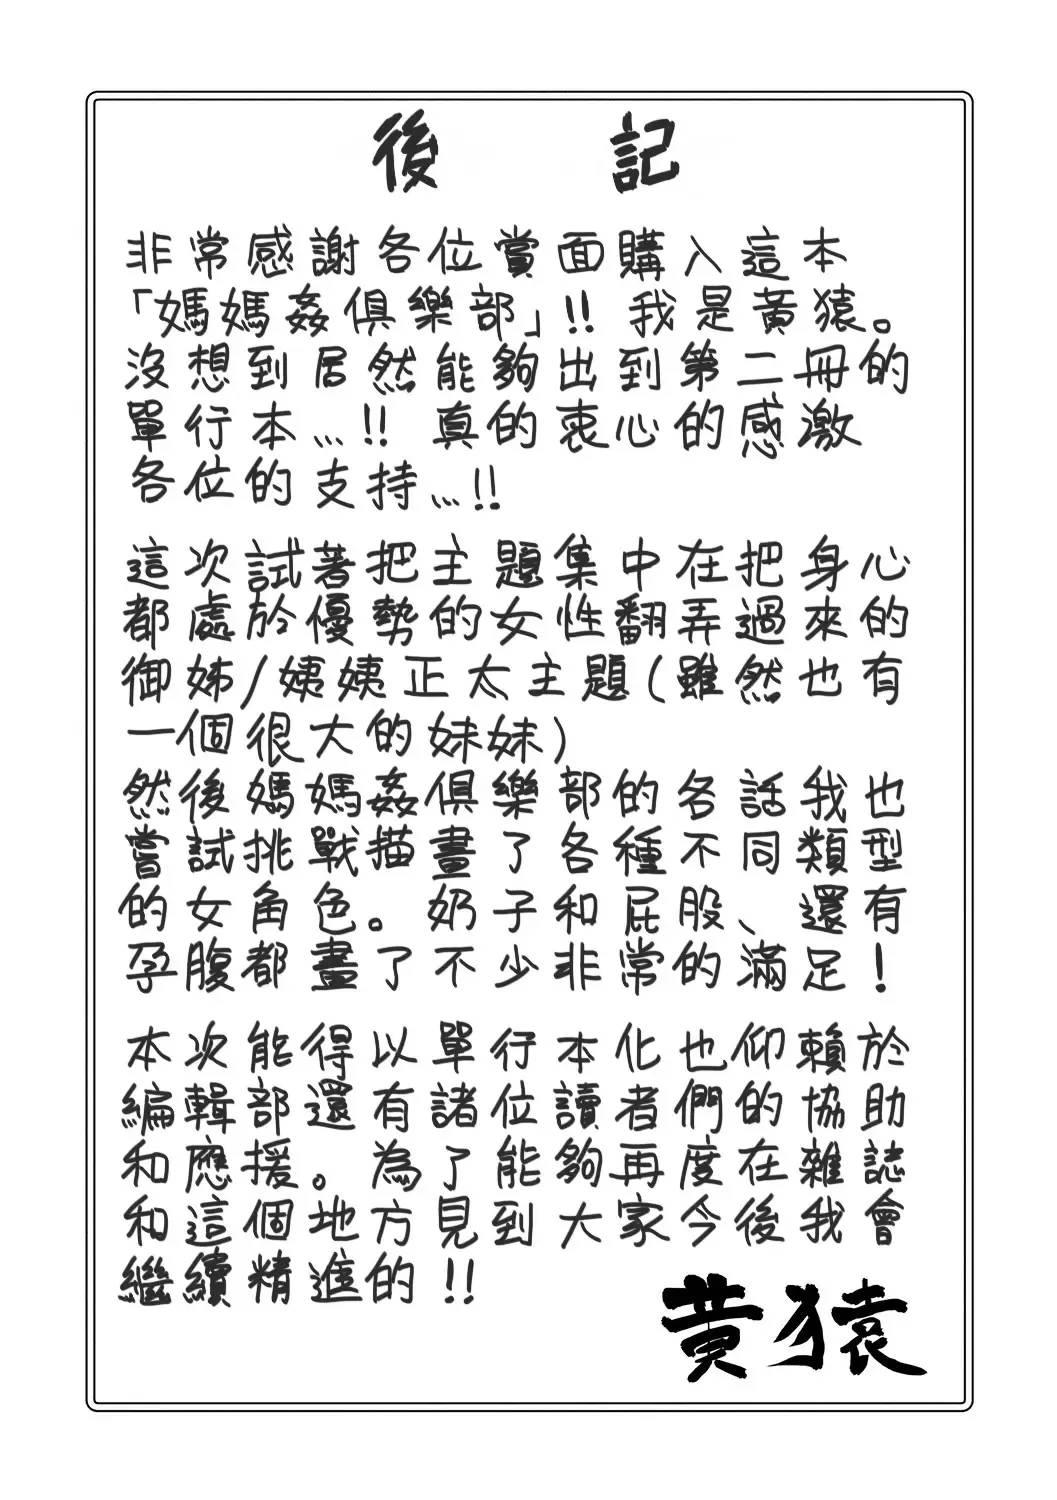 後 記
非常感謝各位賞面購入這本
「媽媽姦俱樂部」!! 我是黃猿。
沒想到居然能夠出到第二冊的
單行本...!! 真的衷心的感激
各位的支持...!!
這次試著把主題集中在把身心
都處於優勢的女性翻弄過來的
御姊/姨姨正太主題(雖然也有
一個很大的妹妹)
然後媽媽姦俱樂部的各話我也
嘗試挑戰描畫了各種不同類型
的女角色。奶子和屁股、還有
孕腹都畫了不少非常的滿足!
本次能得以單行本化也仰賴於
編輯部還有諸位讀者們的協助
和應援。為了能夠再度在雜誌
和這個地方見到大家今後我會
繼續精進的!!
黃猿